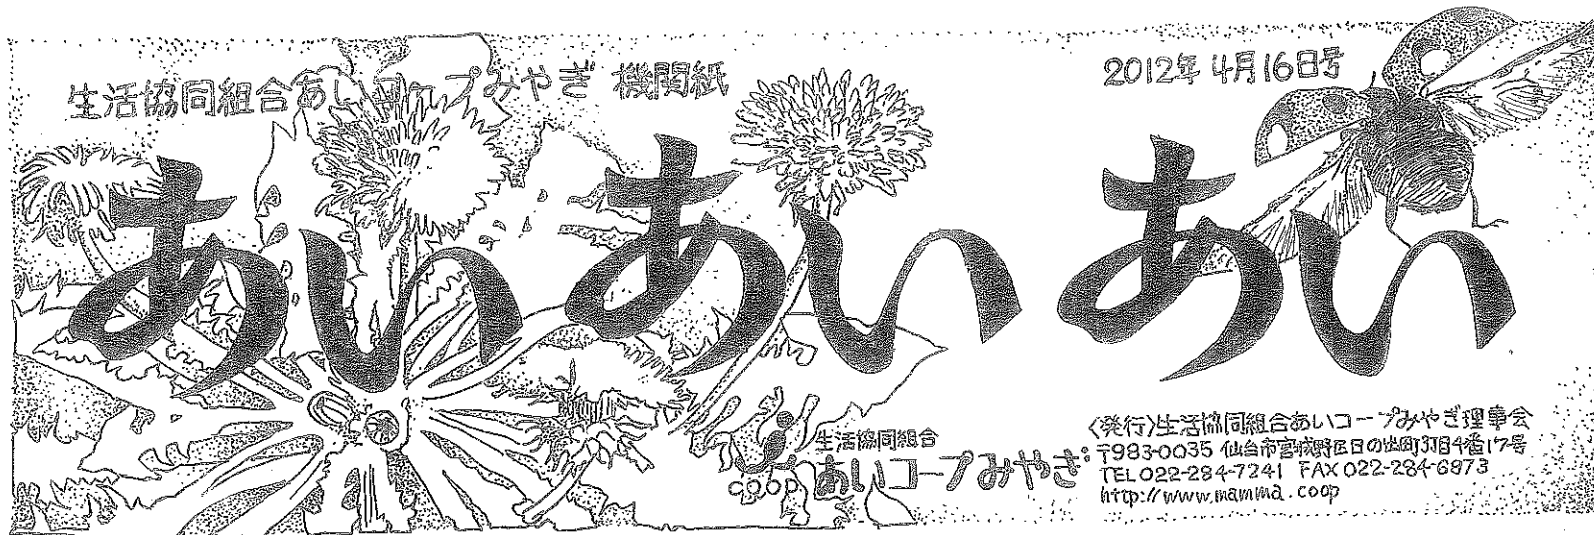 生活協同組合あいコープみやぎ 機関紙
2012年4月16日号
あいあいあい
生活協同組合
coop あいコープみやぎ
〈発行〉生活協同組合あいコープみやぎ理事会
〒983-0035 仙台市宮城野区日の出町3丁目4番17号
TEL 022-284-7241 FAX 022-284-6873
http://www.mamma.coop